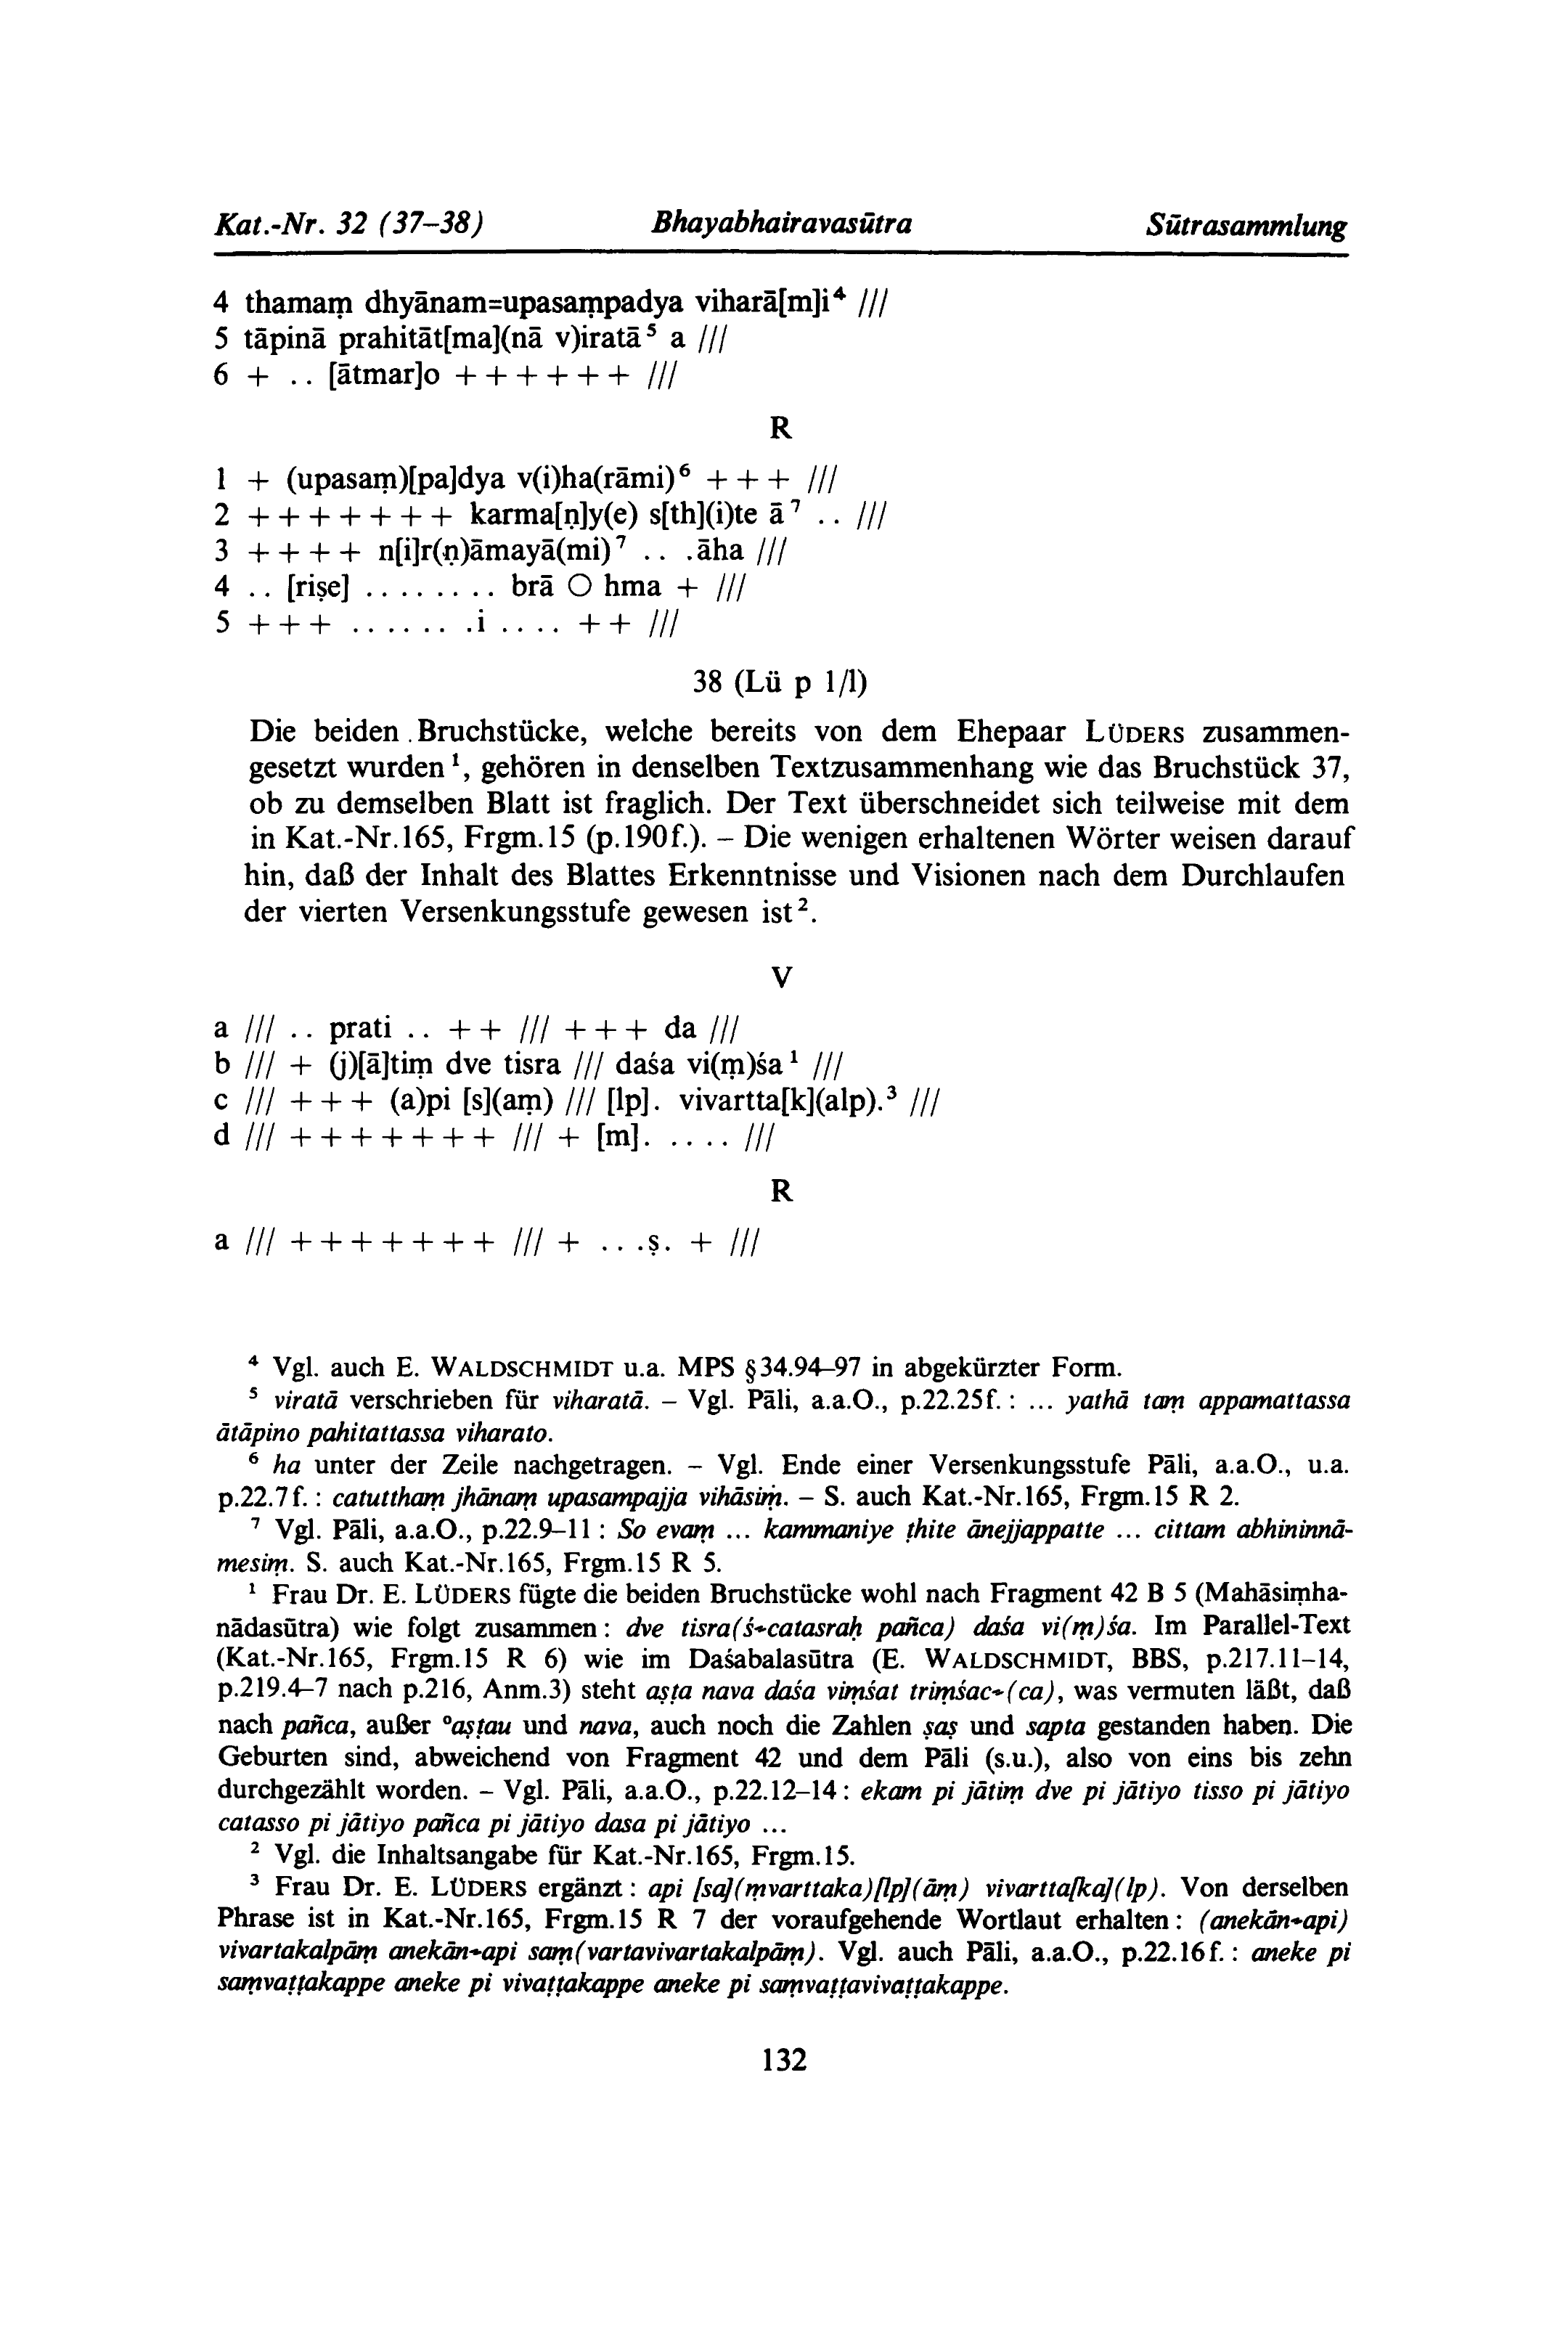 Kat.-Nr. 32 (37–38) Bhayabhairavasūtra Sūtrasammlung
4 thamaṃ dhyānam=upasaṃpadya viharā[m]i⁴ ///
5 tāpinā prahitāt[ma](nā v)iratā⁵ a ///
6 + .. [ātmar]o + + + + + + ///
R
1 + (upasaṃ)[pa]dya v(i)ha(rāmi)⁶ + + + ///
2 + + + + + + + karma[ṇ]y(e) s[th](i)te ā⁷ .. ///
3 + + + + n[i]r(ṇ)āmayā(mi)⁷ .. .āha ///
4 .. [riṣe] ........ brā O hma + ///
5 + + + ....... .i .... + + ///
38 (Lü p 1/1)
Die beiden Bruchstücke, welche bereits von dem Ehepaar LÜDERS zusammen-
gesetzt wurden¹, gehören in denselben Textzusammenhang wie das Bruchstück 37,
ob zu demselben Blatt ist fraglich. Der Text überschneidet sich teilweise mit dem
in Kat.-Nr.165, Frgm.15 (p.190f.). – Die wenigen erhaltenen Wörter weisen darauf
hin, daß der Inhalt des Blattes Erkenntnisse und Visionen nach dem Durchlaufen
der vierten Versenkungsstufe gewesen ist².
V
a /// .. prati .. + + /// + + + da ///
b /// + (j)[ā]tiṃ dve tisra /// daśa vi(ṃ)śa¹ ///
c /// + + + (a)pi [s](aṃ) /// [lp]. vivartta[k](alp).³ ///
d /// + + + + + + + /// + [m]. .... ///
R
a /// + + + + + + + /// + ...ṣ. + ///
⁴ Vgl. auch E. WALDSCHMIDT u.a. MPS §34.94–97 in abgekürzter Form.
⁵ viratā verschrieben für viharatā. – Vgl. Pāli, a.a.O., p.22.25f.: ... yathā taṃ appamattassa
ātāpino pahitattassa viharato.
⁶ ha unter der Zeile nachgetragen. – Vgl. Ende einer Versenkungsstufe Pāli, a.a.O., u.a.
p.22.7f.: catutthaṃ jhānaṃ upasampajja vihāsiṃ. – S. auch Kat.-Nr.165, Frgm.15 R 2.
⁷ Vgl. Pāli, a.a.O., p.22.9–11: So evaṃ ... kammaniye ṭhite ānejjappatte ... cittam abhininnā-
mesiṃ. S. auch Kat.-Nr.165, Frgm.15 R 5.
¹ Frau Dr. E. LÜDERS fügte die beiden Bruchstücke wohl nach Fragment 42 B 5 (Mahāsiṃha-
nādasūtra) wie folgt zusammen: dve tisra(ś+catasraḥ pañca) daśa vi(ṃ)śa. Im Parallel-Text
(Kat.-Nr.165, Frgm.15 R 6) wie im Daśabalasūtra (E. WALDSCHMIDT, BBS, p.217.11–14,
p.219.4–7 nach p.216, Anm.3) steht aṣṭa nava daśa viṃśat triṃśac+(ca), was vermuten läßt, daß
nach pañca, außer °aṣṭau und nava, auch noch die Zahlen ṣaṣ und sapta gestanden haben. Die
Geburten sind, abweichend von Fragment 42 und dem Pāli (s.u.), also von eins bis zehn
durchgezählt worden. – Vgl. Pāli, a.a.O., p.22.12–14: ekam pi jātiṃ dve pi jātiyo tisso pi jātiyo
catasso pi jātiyo pañca pi jātiyo dasa pi jātiyo ...
² Vgl. die Inhaltsangabe für Kat.-Nr.165, Frgm.15.
³ Frau Dr. E. LÜDERS ergänzt: api [sa](ṃvarttaka)[lp](āṃ) vivartta[ka](lp). Von derselben
Phrase ist in Kat.-Nr.165, Frgm.15 R 7 der voraufgehende Wortlaut erhalten: (anekān+api)
vivartakalpāṃ anekān+api saṃ(vartavivartakalpāṃ). Vgl. auch Pāli, a.a.O., p.22.16f.: aneke pi
saṃvaṭṭakappe aneke pi vivaṭṭakappe aneke pi saṃvaṭṭavivaṭṭakappe.
132